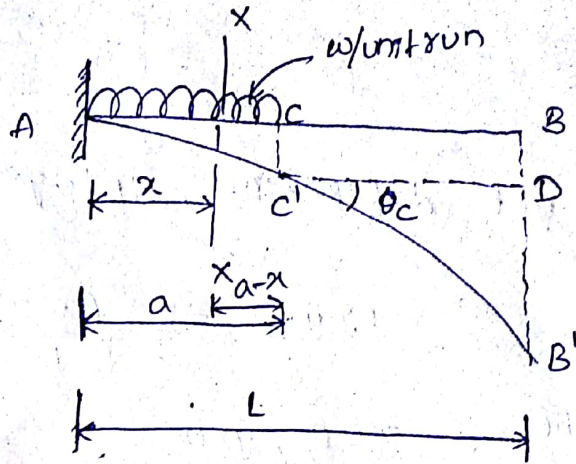 X
w/unit run
A
C
B
x
C'
θc
D
X
a-x
a
B'
L